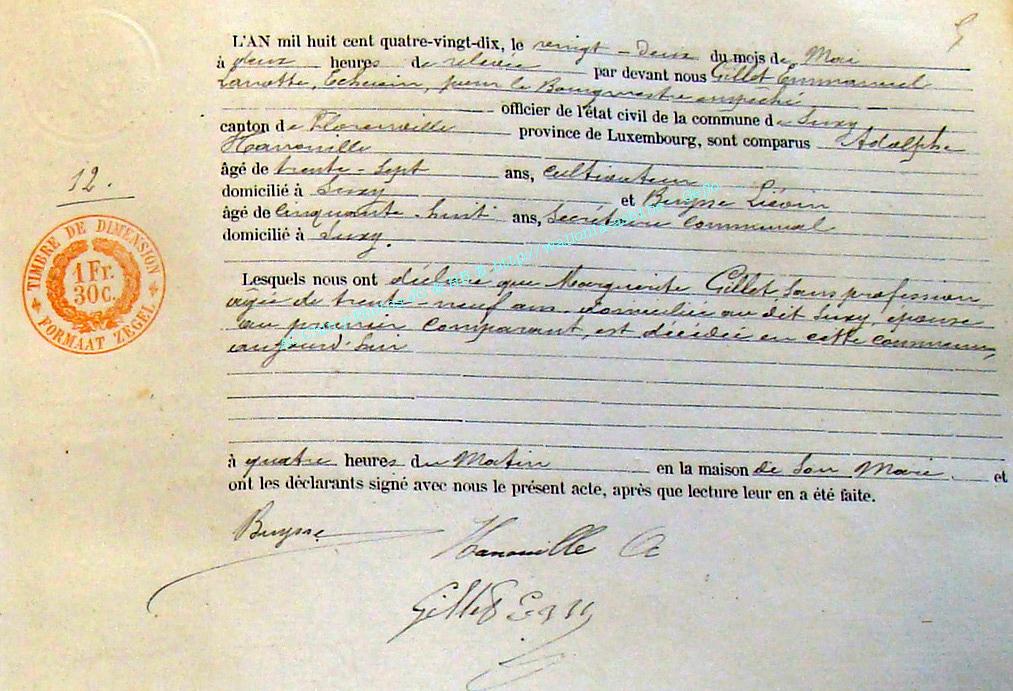 L'AN mil huit cent quatre-vingt-dix, le vingt-deux du mois de Mai
à deux heures de relevée par devant nous Gillet Emmanuel
Echevin, pour le Bourgmestre empêché
officier de l'état civil de la commune de Suxy
canton de Florenville province de Luxembourg, sont comparus Adolphe
Hanouille
âgé de trente-sept ans, cultivateur
domicilié à Suxy et Buysse Liévin
âgé de cinquante-huit ans, Secrétaire communal
domicilié à Suxy.
Lesquels nous ont déclaré que Marguerite Gillet, sans profession
agée de trente neuf ans, domiciliée au dit Suxy, épouse
au premier comparant, est décédée en cette commune,
aujourd'hui
à quatre heures du Matin en la maison de son Mari et
ont les déclarants signé avec nous le présent acte, après que lecture leur en a été faite.
12.
TIMBRE DE DIMENSION
1 Fr.
30 c.
FORMAAT ZEGEL
Buysse
Hanouille A
Gillet